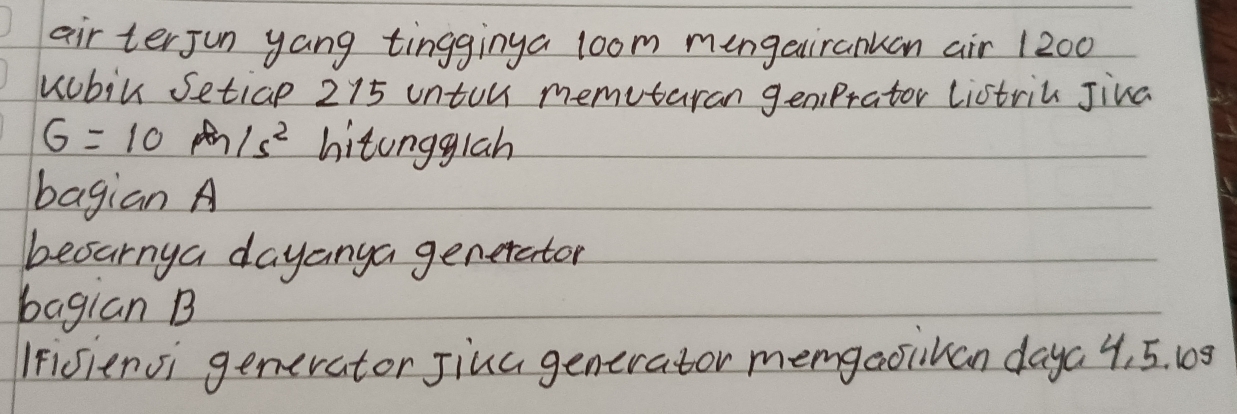 air terjun yang tingginya 100m mengairankan air 1200
kubik setiap 215 untuk memutaran geniprator listrik jika
G = 10 m/s² hitungglah
bagian A
besarnya dayanya generator
bagian B
Ifisiensi generator jika generator memgasilkan daya 4,5.108